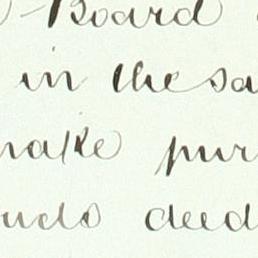 Board
in the sa
make pur
deed